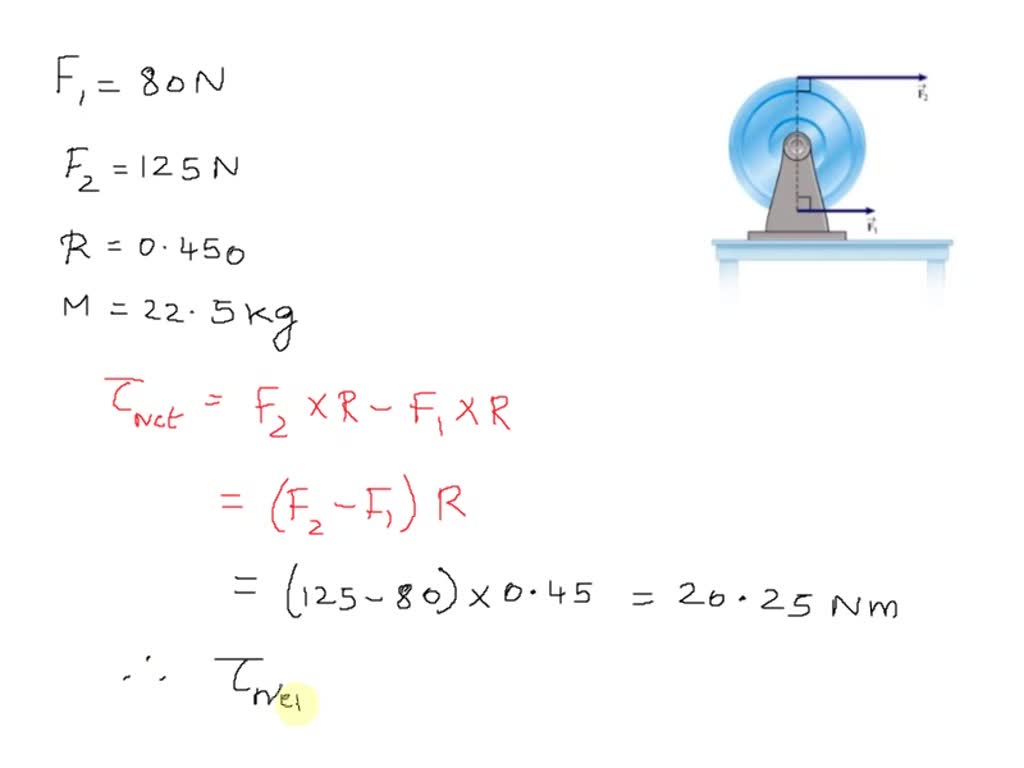 F₁ = 80N
F₂ = 125N
R = 0.450
M = 22.5kg
τNet = F₂ × R - F₁ × R
= (F₂ - F₁) R
= (125 - 80) × 0.45 = 20.25 Nm
∴ τNet
F₂
F₁